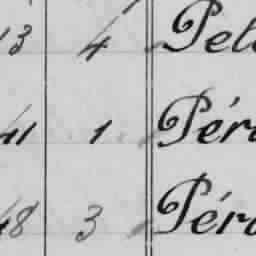 13 4 Pel
41 1 Pér
48 3 Pér